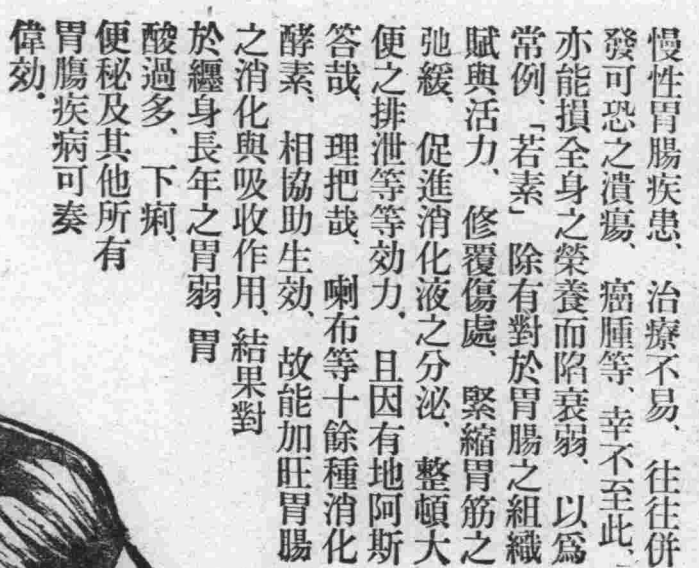 慢性胃腸疾患、治療不易、往往併
發可恐之潰瘍、癌腫等、幸不至此、
亦能損全身之榮養而陷衰弱、以爲
常例、「若素」除有對於胃腸之組織
賦與活力、修覆傷處、緊縮胃筋之
弛緩、促進消化液之分泌、整頓大
便之排泄等等効力，且因有地阿斯
答哉、理把哉、喇布等十餘種消化
酵素、相協助生効、故能加旺胃腸
之消化與吸收作用、結果對
於纏身長年之胃弱、胃
酸過多、下痢、
便秘及其他所有
胃膓疾病可奏
偉効．